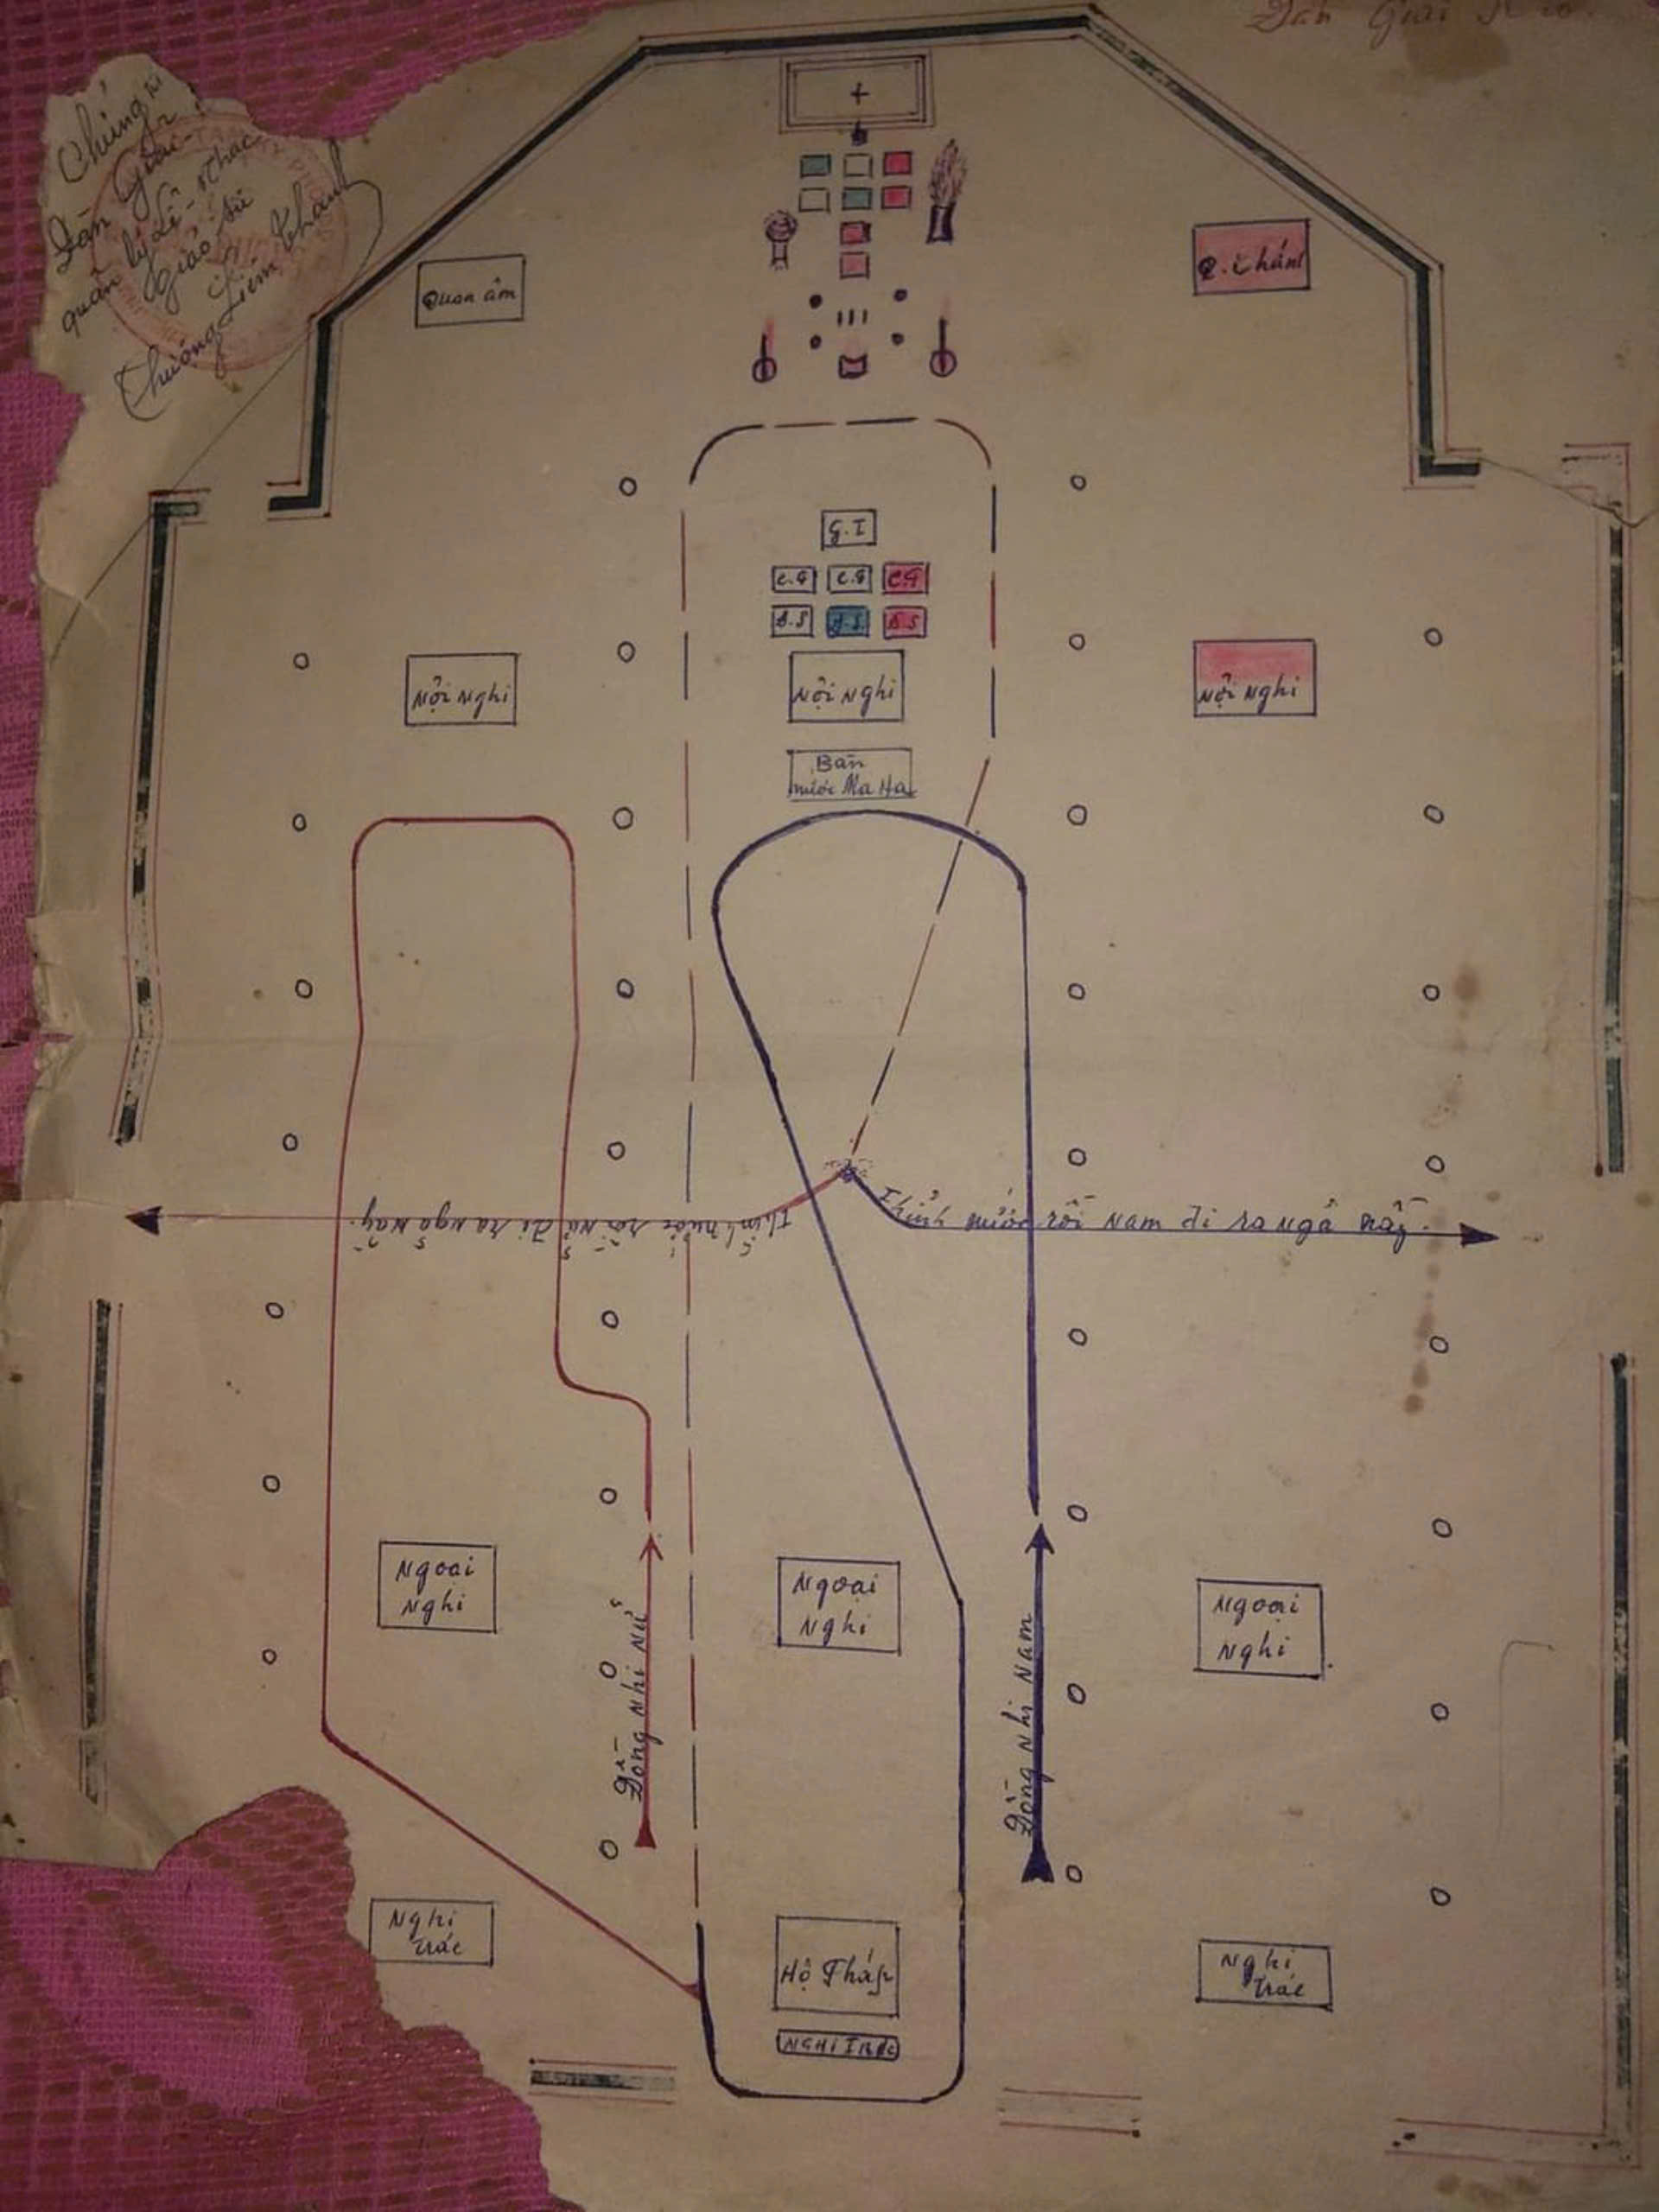 Đàn Giải
Chứng
quản lý Lễ
Giáo Sư
Thượng Liêm Thanh
+
Quan âm
Q. Thánh
G.I
C.G C.G C.G
G.S G.S G.S
Nội Nghi
Nội Nghi
Nội Nghi
Bàn
nước Ma Ha
Thỉnh nước rồi Nữ đi ra ngả nầy.
Thỉnh nước rồi Nam đi ra ngả nầy.
Ngoại
Nghi
Ngoại
Nghi
Ngoại
Nghi
Đồng Nhi Nữ
Đồng Nhi Nam
Nghi
Trác
Hộ Pháp
NGHI TRÁC
Nghi
Trác